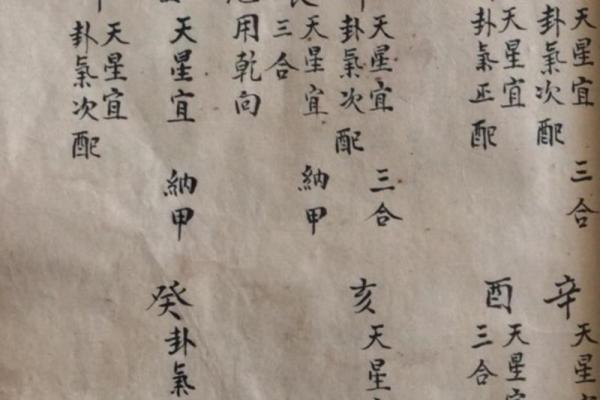 天星宜
卦氣次配
三合
天星宜
卦氣正配
天星宜
卦氣次配
三合
天星宜
三合
納甲
用乾向
天星宜
納甲
天星宜
卦氣次配
辛
天星
酉
天星宜
三合
亥
天星
癸
卦氣